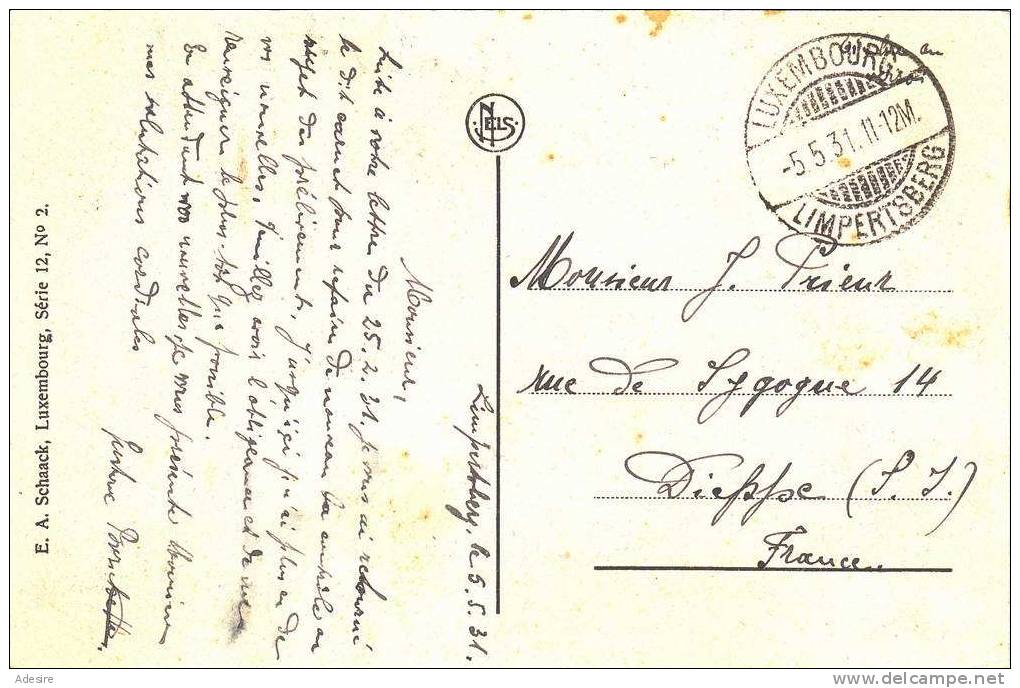 E. A. Schaack, Luxembourg, Série 12, No 2.
NELS
LUXEMBOURG
-5.5.31.11-12M.
LIMPERTSBERG
Limpertsberg, le 5.5.31.
Monsieur,
Suite à votre lettre du 25.2.31. je vous ai retourné
le dit carnet pour refaire de nouveau
sujet du prélèvement. Jusqu'ici j'ai plus eu de
vos nouvelles. Veuillez avoir l'obligeance et de me
renseigner le plus tôt que possible.
En attendant vos nouvelles, je vous présente Monsieur
mes salutations cordiales
Gustave
Monsieur J. Prieur
rue de Sygogne 14
Dieppe (S. I.)
France.
Adesire
www.delcampe.net